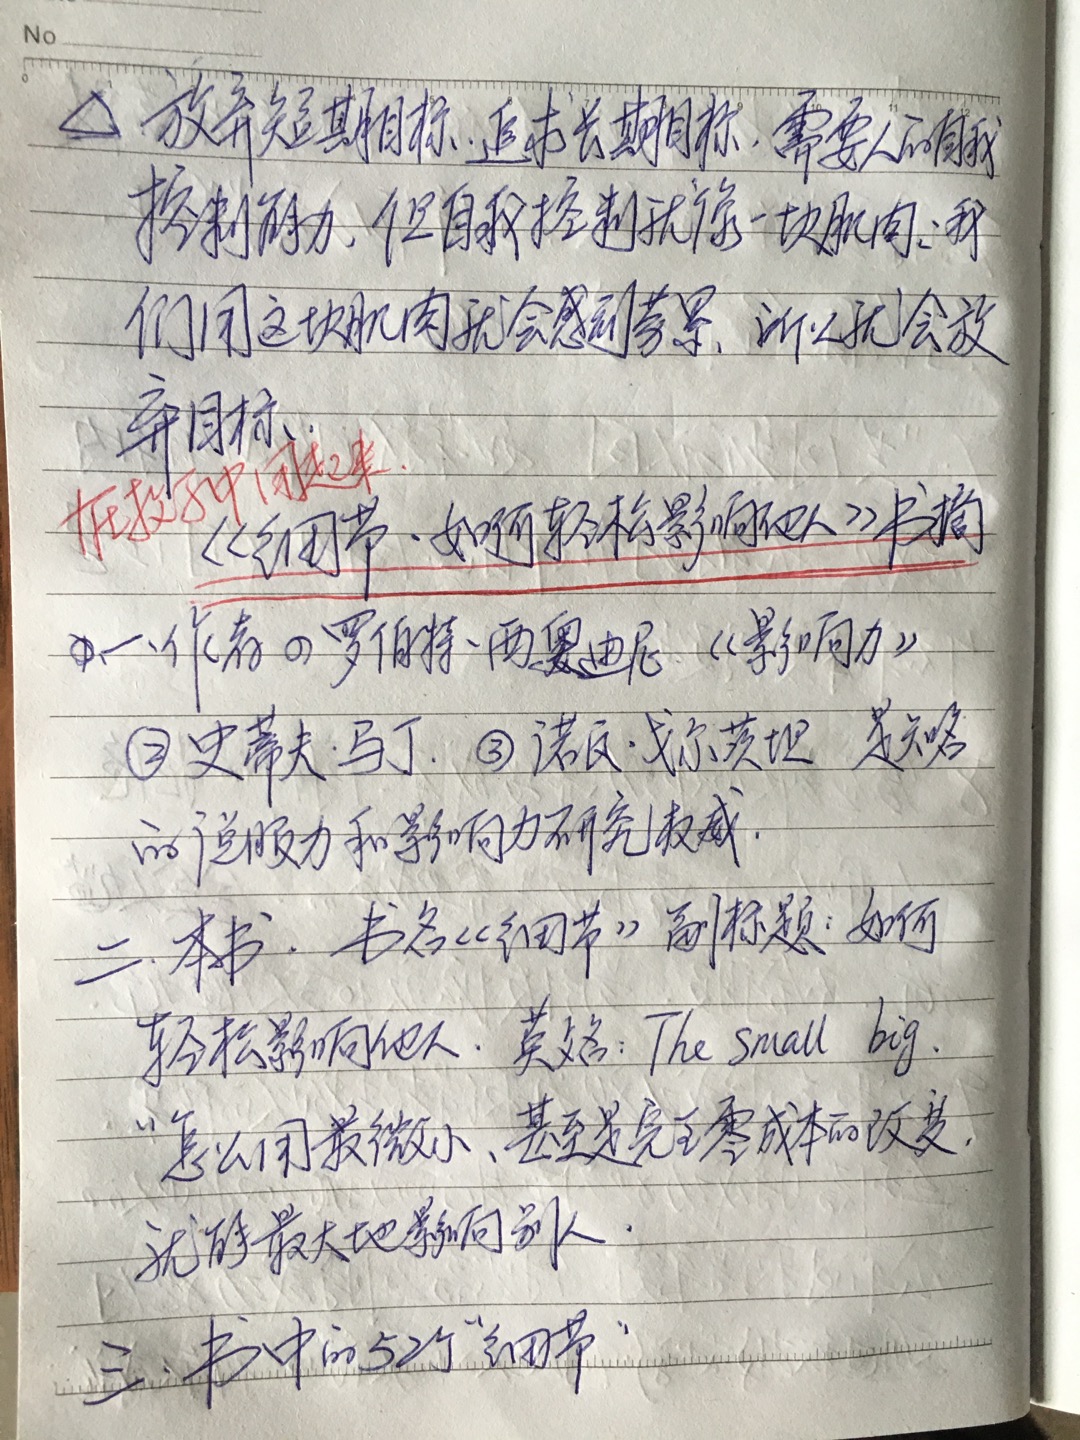 No
△ 放弃短期目标、追求长期目标,需要人的自我
控制能力、但自我控制就像一块肌肉、我
们用这块肌肉就会感到劳累、所以就会放
弃目标、
在投子中用起来.
《细节·如何轻松影响他人》书摘
一、作者 ① 罗伯特·西奥迪尼 《影响力》
② 史蒂夫·马丁. ③ 诺瓦·戈尔茨坦 是知名
的说服力和影响力研究权威.
二. 本书. 书名《细节》副标题: 如何
轻松影响他人. 英文名: The small big.
"怎么用最微小、甚至是完全零成本的改变,
就能最大地影响别人.
三. 书中的52个"细节"